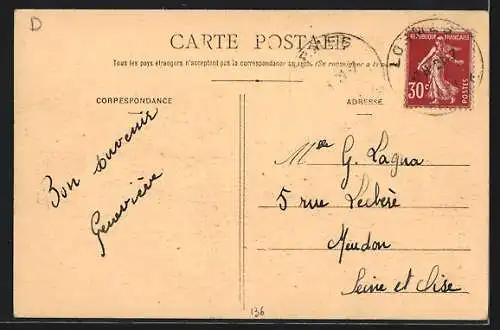 D
CARTE POSTALE
Tous les pays étrangers n'acceptent pas la correspondance au recto
CORRESPONDANCE
ADRESSE
RÉPUBLIQUE FRANÇAISE
30c
POSTES
Bon souvenir
Geneviève
Mlle G. Lagna
5 rue
Meudon
Seine et Oise
136